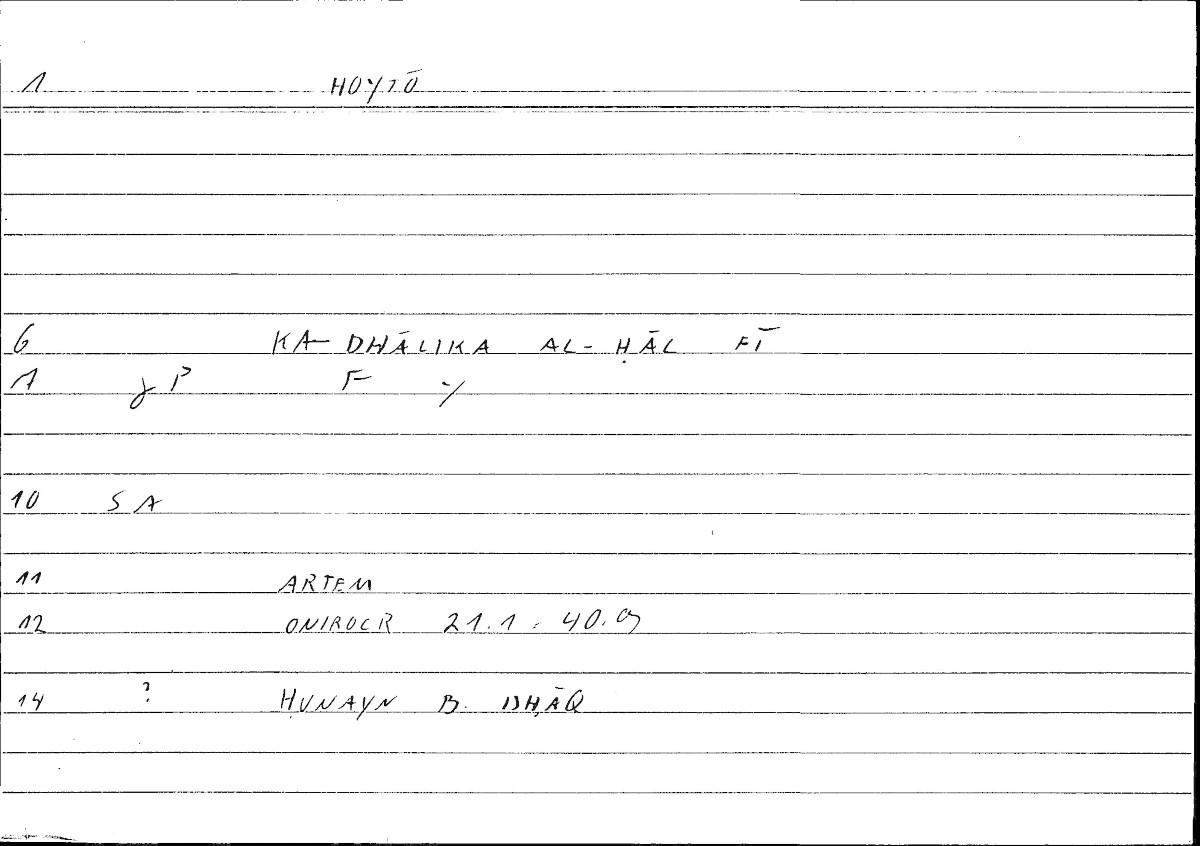 1 HOYTŌ
6 KA-DHĀLIKA AL-ḤĀL FĪ
1 P F
10 S A
11 ARTEM
12 ONIROCR 21.1 40.9
14 ? ḤUNAYN B. ISḤĀQ